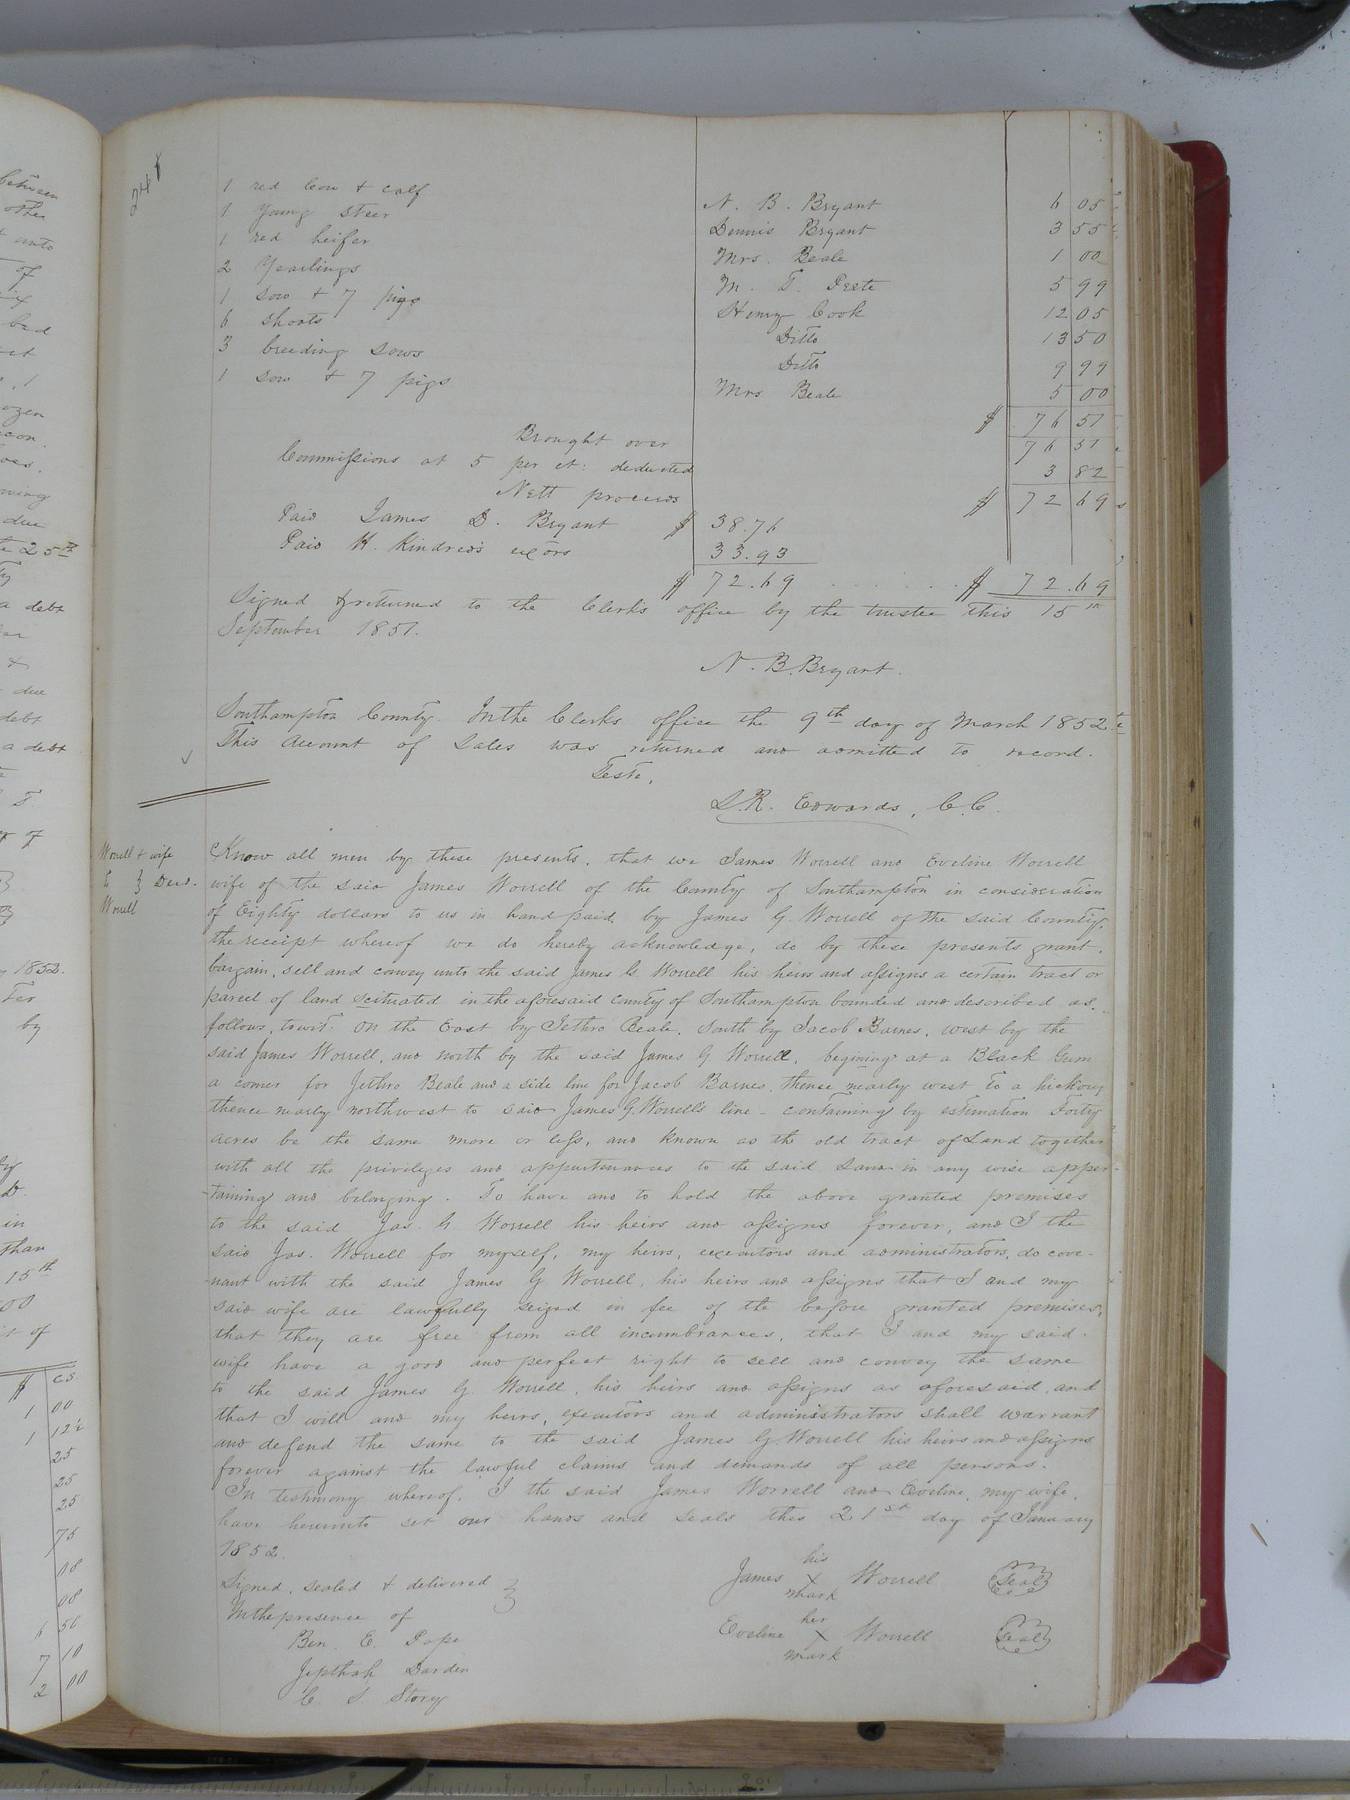 248
1 red Cow + calf N. B. Bryant 6 05
1 Young steer Dennis Bryant 3 55
1 red heifer Mrs. Beale 1 00
2 Yearlings M. T. Peete 5 99
1 sow + 7 pigs Henry Cook 12 05
6 shoats Ditto 13 50
3 breeding sows Ditto 9 99
1 sow + 7 pigs Mrs Beale 5 00
$ 76 51
Brought over 76 51
Commissions at 5 per ct: deducted 3 82
Nett proceeds $ 72 69
Paid James D. Bryant $ 38.76
Paid K. Kindred's exors 33.93
$ 72.69 $ 72.69
Signed & returned to the Clerk's office by the trustee this 15th
September 1851.
N. B. Bryant.
Southampton County. In the Clerks office the 9th day of March 1852.
This Account of Sales was returned and admitted to record.
Teste,
L. R. Edwards, C. C.
Worrell + wife
To } Deed.
Worrell
Know all men by these presents, that we James Worrell and Eveline Worrell
wife of the said James Worrell of the County of Southampton in consideration
of Eighty dollars to us in hand paid, by James G. Worrell of the said County,
the receipt whereof we do hereby acknowledge, do by these presents grant,
bargain, sell and convey unto the said James G. Worrell his heirs and assigns a certain tract or
parcel of land scituated in the aforesaid County of Southampton bounded and described as
follows, towit: On the East by Jethro Beale, South by Jacob Barnes, west by the
said James Worrell, and north by the said James G. Worrell, begining at a Black Gum
a corner for Jethro Beale and a side line for Jacob Barnes, thense nearly west to a hickory
thence nearly northwest to said James G. Worrell's line - containing by estimation Forty
acres be the same more or less, and known as the old tract of Land together
with all the privileges and appurtenances to the said Land in any wise apper-
-taining and belonging. To have and to hold the above granted premises
to the said Jas. G. Worrell his heirs and assigns forever, and I the
said Jas. Worrell for myself, my heirs, executors and administrators, do cove-
-nant with the said James G. Worrell, his heirs and assigns that I and my
said wife are lawfully seized in fee of the before granted premises,
that they are free from all incumbrances, that I and my said
wife have a good and perfect right to sell and convey the same
to the said James G. Worrell, his heirs and assigns as aforesaid, and
that I will and my heirs, executors and administrators shall warrant
and defend the same to the said James G. Worrell his heirs and assigns
forever against the lawful claims and demands of all persons.
In testimony whereof, I the said James Worrell and Eveline, my wife,
have hereunto set our hands and seals this 21st day of January
1852.
Signed, sealed & delivered }
In the presence of
Ben. E. Pope
Jepthah Darden
C. S. Story
his
James X Worrell Seal
mark
her
Eveline X Worrell Seal
mark